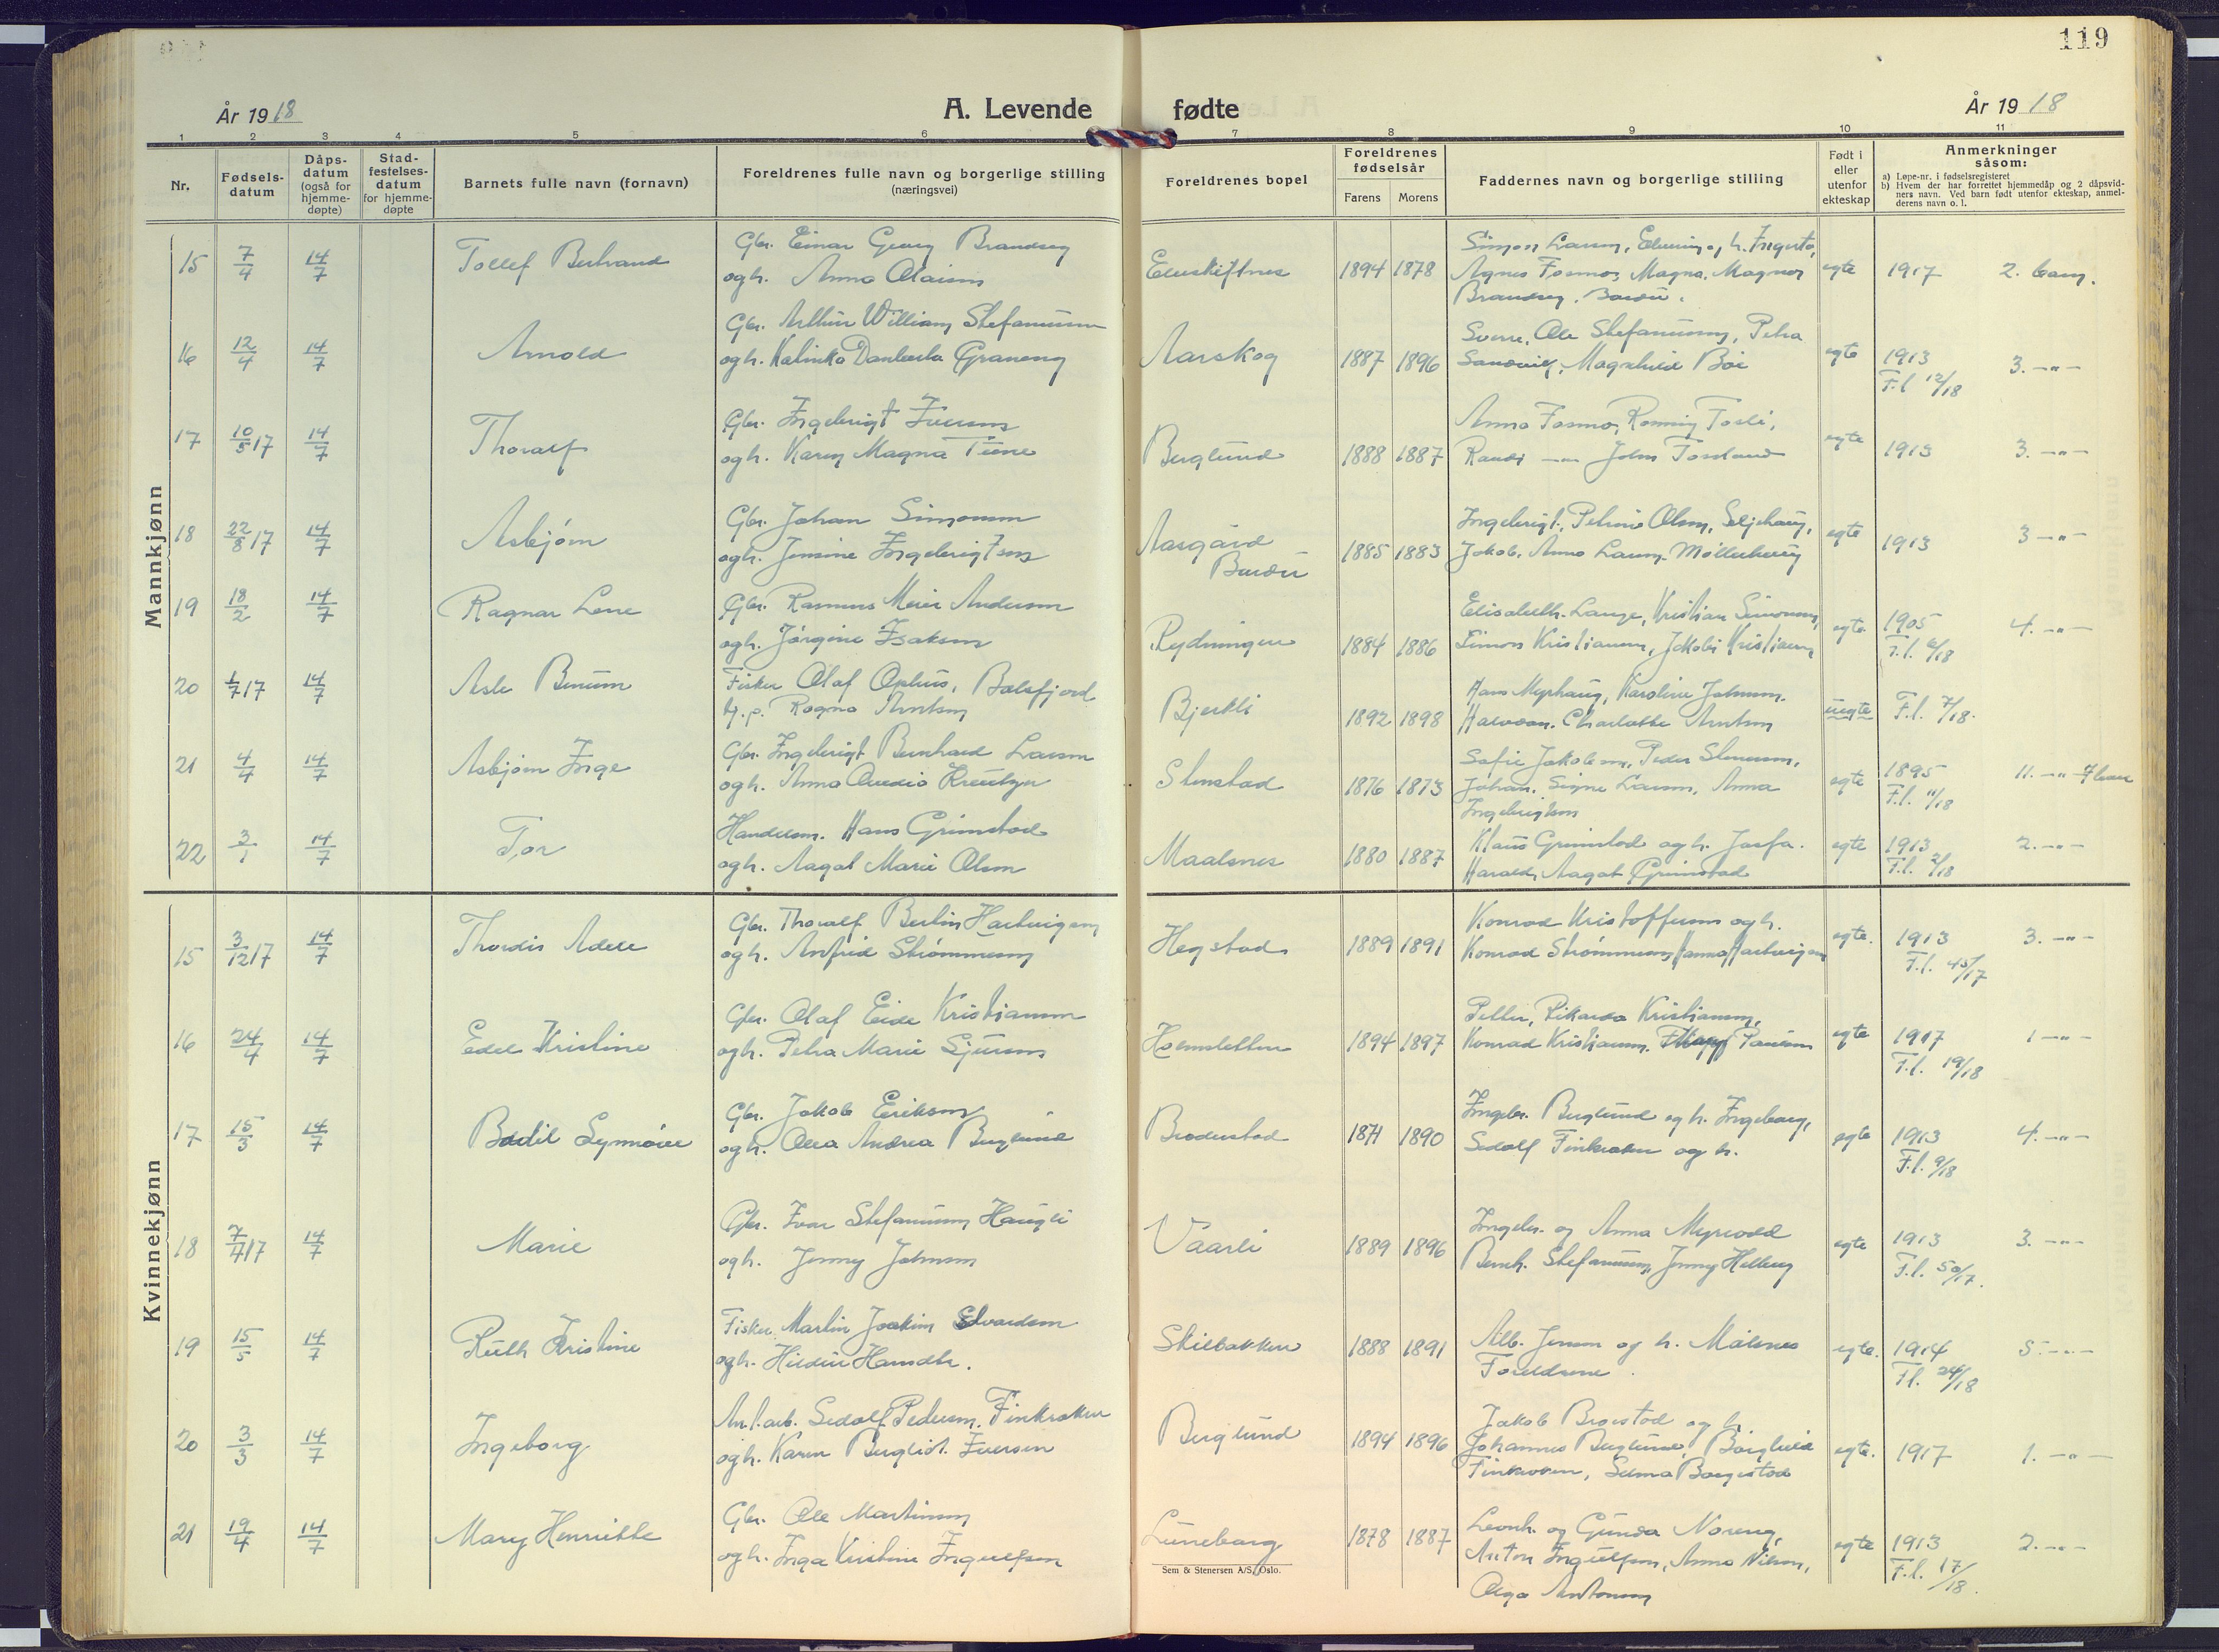 119
År 1918
A. Levende fødte
År 1918
1 2 3 4 5 6 7 8 9 10 11
Nr.
Fødsels-
datum
Dåps-
datum
(også for
hjemme-
døpte)
Stad-
festelses-
datum
for hjemme-
døpte
Barnets fulle navn (fornavn)
Foreldrenes fulle navn og borgerlige stilling
(næringsvei)
Foreldrenes bopel
Foreldrenes
fødselsår
Farens Morens
Faddernes navn og borgerlige stilling
Født i
eller
utenfor
ekteskap
Anmerkninger
såsom:
a) Løpe-nr. i fødselsregisteret
b) Hvem der har forrettet hjemmedåp og 2 dåpsvid-
ners navn. Ved barn født utenfor ekteskap, anmel-
derens navn o. l.
Mannkjønn
15 7/4 14/7 Tollef Gbr. Einar Georg
ogh. Anna
1894 1878 egte 1917 2. barn.
16 12/4 14/7 Arnold Gbr. Arthur William Stefanussen
ogh. Kalinka Graneng
Aarskog 1887 1896 Sverre, Ole Stefanussen, Petra
Bøe egte 1913 3. -"-
F.l 12/18
17 10/5 17 14/7 Thoralf Gbr. Ingebrigt Iversen
ogh. Karen Magna
Berglund 1888 1887 Anna Fosmo,
Randi -"- John Fossland egte 1913 3. -"-
18 22/8 17 14/7 Asbjørn Gbr. Johan Simonsen
ogh. Jensine Ingebrigtsen
Aasgård
Bardu 1885 1883 Ingebrigt, Olsen,
Jakob, Anna Larsen egte 1913 3 -"-
19 18/2 14/7 Ragnar Gbr. Rasmus Meier Andersen
ogh. Jørgine Isaksen
1884 1886 Elisabeth Lange, Kristian Simonsen,
Simon Kristiansen, Jakobi Kristiansen egte 1905 4. -"-
F.l. 6/18
20 1/7 17 14/7 Asle Fisker Olaf Ophus, Balsfjord
p. Ragna Arntsen
Bjerkli 1892 1898 Hans Myrhaug, Karoline Johnsen.
Charlotte Arntsen uegte F.l. 7/18.
21 4/4 14/7 Asbjørn Inge Gbr. Ingebrigt Bernhard Larsen
ogh. Anna
Stenstad 1876 1873 Sofie Jakobsen, Peder Stenersen,
Johan, Signe Larsen, Anna
Ingebrigtsen egte 1895 11. -"- 7 leve
F.l. 11/18
22 3/1 14/7 Tor Handelsm. Hans Grimstad
ogh. Aagot Marie Olsen
Maalsnes 1880 1887 Klaus Grimstad og h.
Harald, Aagot Grimstad egte 1913 2. -"-
F.l. 2/18
Kvinnekjønn
15 3/12 17 14/7 Thordis Adele Gbr. Thoralf Hartvigsen
ogh. Anfrid Strømmesen
Hegstad 1889 1891 Konrad Kristoffersen og h.
Konrad Strømmesen, Hanna Hartvigsen egte. 1913 3. -"-
F.l. 45/17
16 24/4 14/7 Edel Kristine Gbr. Olaf Eide Kristiansen
ogh. Petra Marie Sjursen
Holmsletten 1894 1897 Petter, Rikarda Kristiansen,
Konrad Kristiansen. egte 1917 1 -"-
F.l. 19/18
17 15/3 14/7 Bodil Synnøve Gbr. Jakob Eriksen
ogh. Olea Andrea Berglund
1871 1890 Ingebr. Berglund og h. Ingeborg,
Sedolf Finkroken og h. egte 1913 4. -"-
F.l. 9/18
18 7/4 17 14/7 Marie Gbr. Ivar Stefanussen Haugli
ogh. Jenny Johnsen
Vaarli 1889 1896 Ingebr. og Anna Myrvold
Bernh. Stefanussen, Jenny egte 1913 3. -"-
F.l. 50/17.
19 15/5 14/7 Ruth Kristine Fisker Martin Joakim Edvardsen
ogh. Hildur Hansdtr.
Skilbakken 1888 1891 Alb. Jensen og h. Målsnes
Foreldrene. egte. 1914 5. -"-
F.l. 24/18
20 3/3 14/7 Ingeborg Sedolf Pedersen Finkroken
ogh. Karen Berglid. Iversen
Berglund 1894 1896 Jakob og h
Johannes Berglund, Borghild
Finkroken, Selma egte. 1917 1. -"-
21 19/4 14/7 Mary Henriette Gbr. Ole Martinsen
ogh. Inga Kristine Ingulfsen
Luneborg 1878 1887 Leonh. og Gunda Noreng,
Anton Ingulfsen, Anna Nilsen,
Olga Antonsen egte 1913 2. -"-
F.l. 17/18.
Sem & Stenersen A/S, Oslo.